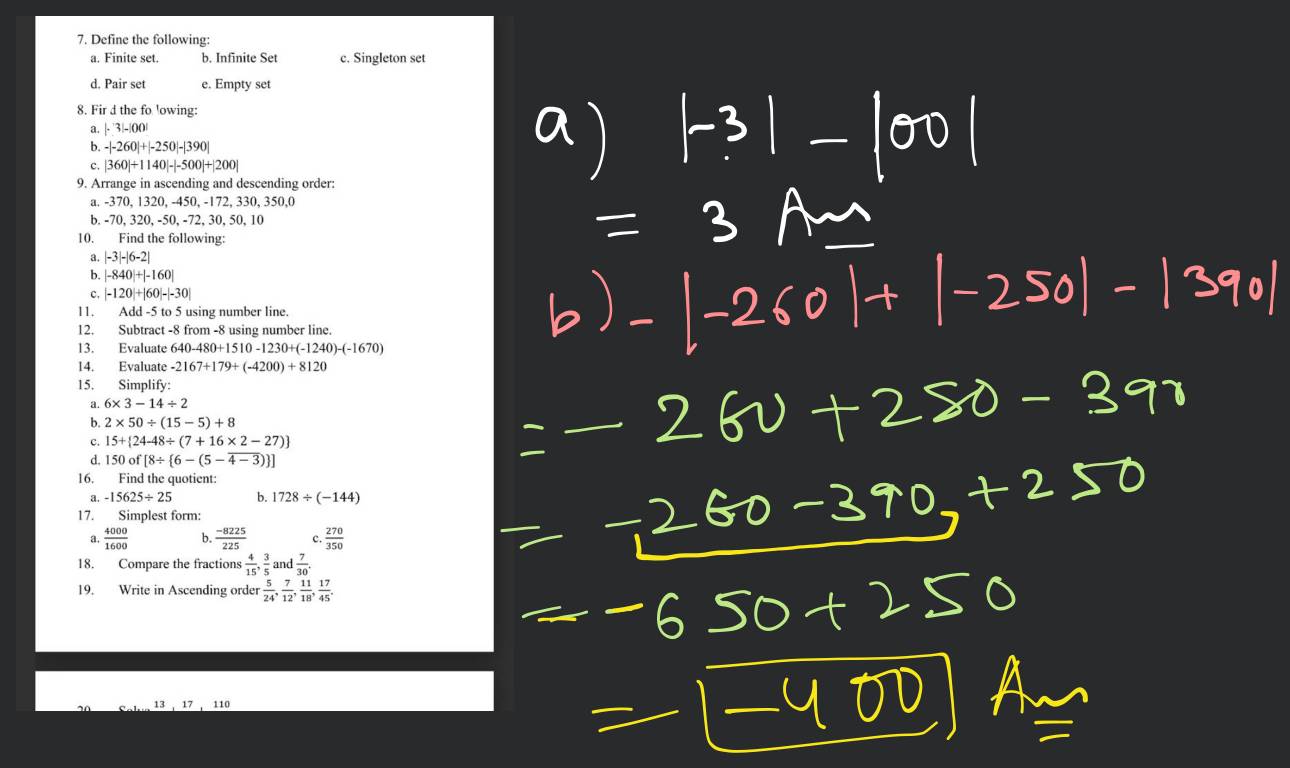 7. Define the following:
a. Finite set. b. Infinite Set c. Singleton set
d. Pair set e. Empty set
8. Find the following:
a. |-3|-|00|
b. -|-260|+|-250|-|390|
c. |360|+1140|-|-500|+|200|
9. Arrange in ascending and descending order:
a. -370, 1320, -450, -172, 330, 350,0
b. -70, 320, -50, -72, 30, 50, 10
10. Find the following:
a. |-3|-|6-2|
b. |-840|+|-160|
c. |-120|+|60|-|-30|
11. Add -5 to 5 using number line.
12. Subtract -8 from -8 using number line.
13. Evaluate 640-480+1510 -1230+(-1240)-(-1670)
14. Evaluate -2167+179+ (-4200) + 8120
15. Simplify:
a. 6× 3 − 14 ÷ 2
b. 2 × 50 ÷ (15 − 5) + 8
c. 15+{24-48÷ (7 + 16 × 2 − 27)}
d. 150 of [8÷ {6 − (5 − 4 − 3)}]
16. Find the quotient:
a. -15625÷ 25 b. 1728 ÷ (−144)
17. Simplest form:
a. 4000/1600 b. −8225/225 c. 270/350
18. Compare the fractions 4/15, 3/5 and 7/30.
19. Write in Ascending order 5/24, 7/12, 11/18, 17/45.
a) |-3| - |00|
= 3 Ans
b) - |-260| + |-250| - |390|
= - 260 + 250 - 390
= -260 - 390 + 250
= - 650 + 250
= - 400 Ans